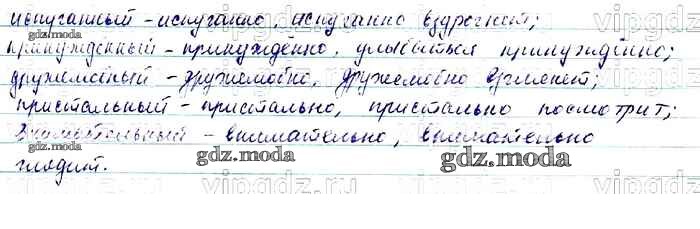 испуганный - испуганно, испуганно вздрогнет;
принуждённый - принуждённо, улыбаться принуждённо;
дружелюбный - дружелюбно, дружелюбно взглянет;
пристальный - пристально, пристально посмотрит;
Внимательный - внимательно, внимательно
глядит.
gdz.moda
gdz.moda
gdz.moda
vipgdz.ru